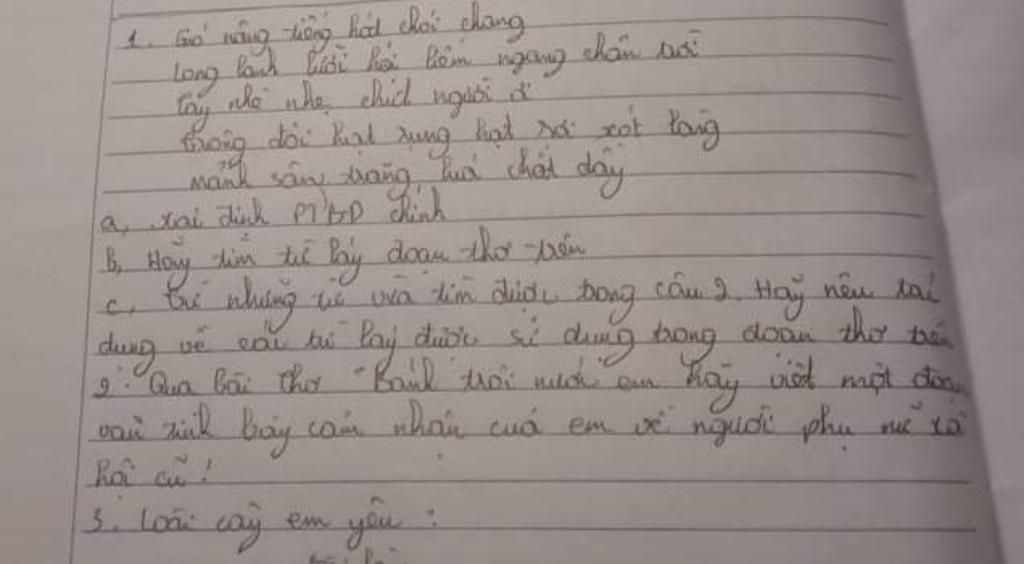 1. Gió nâng tiếng hát chói chang
Long lanh lưỡi hái liếm ngang chân trời
tay nhè nhẹ chút người ơi
trông đôi hạt rụng hạt rơi xót lòng
mảnh sân trăng lúa chất đầy
a, xai định PTBĐ chính
b, Hãy tìm từ láy đoạn thơ trên
c, từ những từ vừa tìm được trong câu 2. Hãy nêu tai
dung về cái từ láy được sử dụng trong đoạn thơ trên
2. Qua bài thơ "Bánh trôi nước" em hãy viết một đoạn
văn trình bày cảm nhận của em về người phụ nữ xã
hội cũ!
3. Loài cây em yêu :